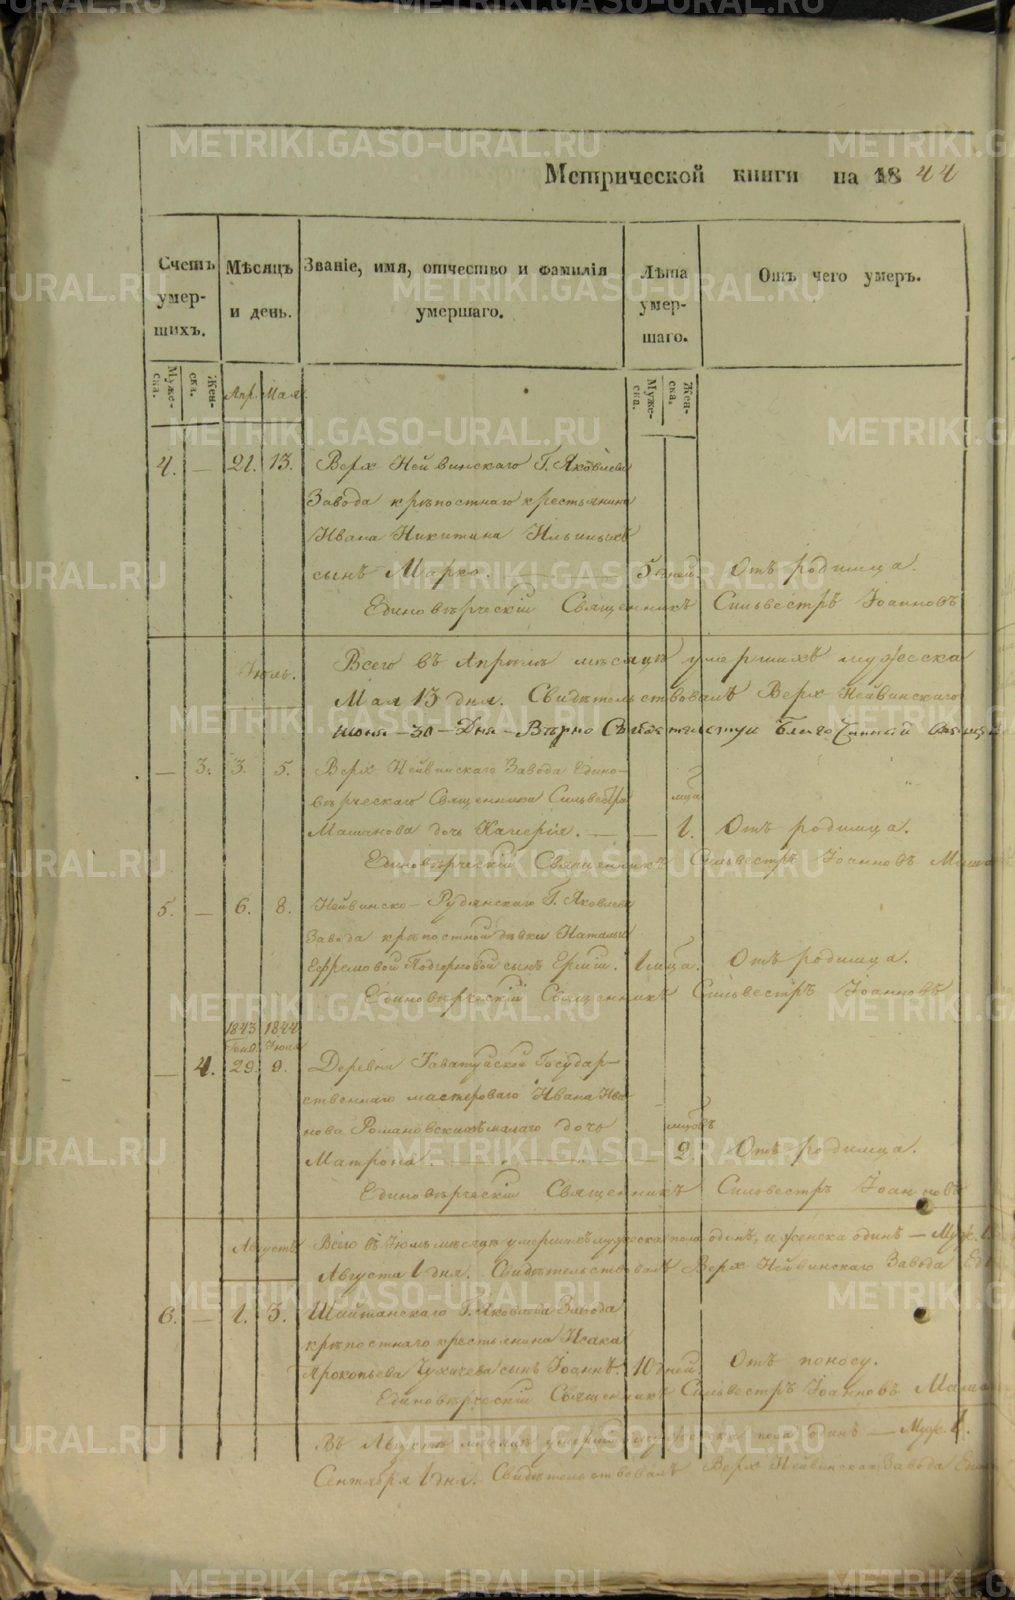 Метрической книги на 1844
Счетъ умершихъ.
Мѣсяцъ и день.
Званіе, имя, отчество и фамилія умершаго.
Лѣта умершаго.
Отъ чего умеръ.
Мужеска. Женска. Апр. Мая. Мужеска. Женска.
4. — 21. 13. Верх Нейвинскаго Г. Яковлева
Завода крѣпостнаго крестьянина
Ивана Никитина Ильиныхъ
сынъ Марко. 5 дней. Отъ родимца.
Единовѣрческій Священникъ Сильвестръ Іоанновъ
Всего въ Апрѣлѣ мѣсяцѣ умершихъ мужеска
Іюль.
Мая 13 дня. Свидѣтельствовалъ Верх Нейвинскаго
Іюня — 30 — Дня — Вѣрно Благочинный
— 3. 3. 5. Верх Нейвинскаго Завода Едино-
вѣрческаго Священника Сильвестра мца
дочь — — 1. Отъ родимца.
Единовѣрческій Священникъ Сильвестръ Іоанновъ
5. — 6. 8. Нейвинско-Рудянскаго Г. Яковлева
Завода крѣпостной дѣвки Натальи
Ефремовой Подгорновой сынъ 1 мца. Отъ родимца.
Единовѣрческій Священникъ Сильвестръ Іоанновъ
1843 1844
Іюля
— 4. 29. 9. Деревни Таватуйской Государ-
ственнаго мастероваго Ивана Ива-
нова дочь мцовъ
Матрона — 2. Отъ родимца.
Единовѣрческій Священникъ Сильвестръ Іоанновъ
Августъ Всего въ Іюлѣ мѣсяцѣ умершихъ мужеска пола одинъ, и женска одинъ — Муж. 1.
Августа 1 дня. Свидѣтельствовалъ Верх Нейвинскаго Завода
6. — 1. 3. Шайтанскаго Г. Яковлева Завода
крѣпостнаго крестьянина Исака
Прокопьева сынъ Іоаннъ. 10 дней. Отъ поносу.
Единовѣрческій Священникъ Сильвестръ Іоанновъ
Въ Августѣ мѣсяцѣ мужеска пола одинъ — Муж. 1.
Сентября 1 дня. Свидѣтельствовалъ Верх Нейвинскаго Завода
METRIKI.GASO-URAL.RU